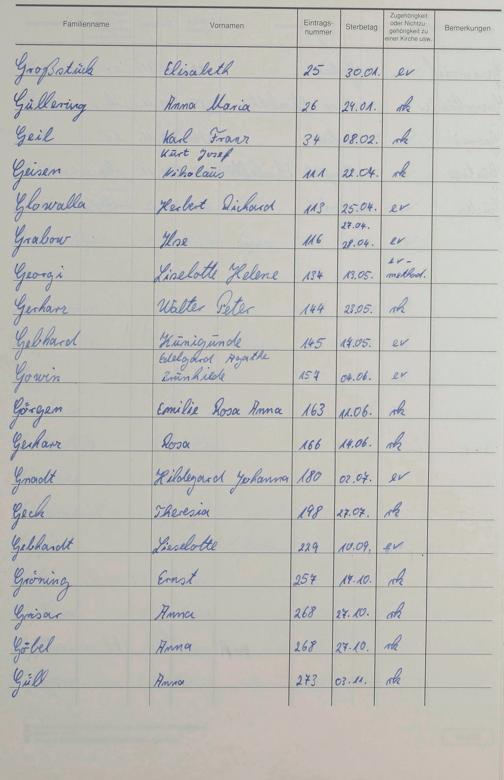 Familienname Vornamen Eintrags-nummer Sterbetag Zugehörigkeit oder Nichtzu-gehörigkeit zu einer Kirche usw. Bemerkungen
Großstück Elisabeth 25 30.01. ev
Güllering Anna Maria 26 24.01. rk
Geil Karl Franz 34 08.02. rk
Kurt Josef
Geisen Nikolaus 111 22.04. rk
Glowalla Herbert Richard 113 25.04. ev
27.04.
Grabow Ilse 116 28.04. ev
ev-
Georgi Liselotte Helene 134 13.05. method.
Gerharz Walter Peter 144 23.05. rk
Gebhard Künigunde 145 19.05. ev
Edelgard Agathe
Gowin Brunhilde 157 04.06. ev
Görgen Emilie Rosa Anna 163 11.06. rk
Gerharz Rosa 166 14.06. rk
Gnadt Hildegard Johanna 180 02.07. ev
Geck Theresia 198 27.07. rk
Gebhardt Lieselotte 229 10.09. ev
Gröning Ernst 257 17.10. rk
Grisar Anna 268 27.10. rk
Göbel Anna 268 27.10. rk
Güll Anna 273 03.11. rk